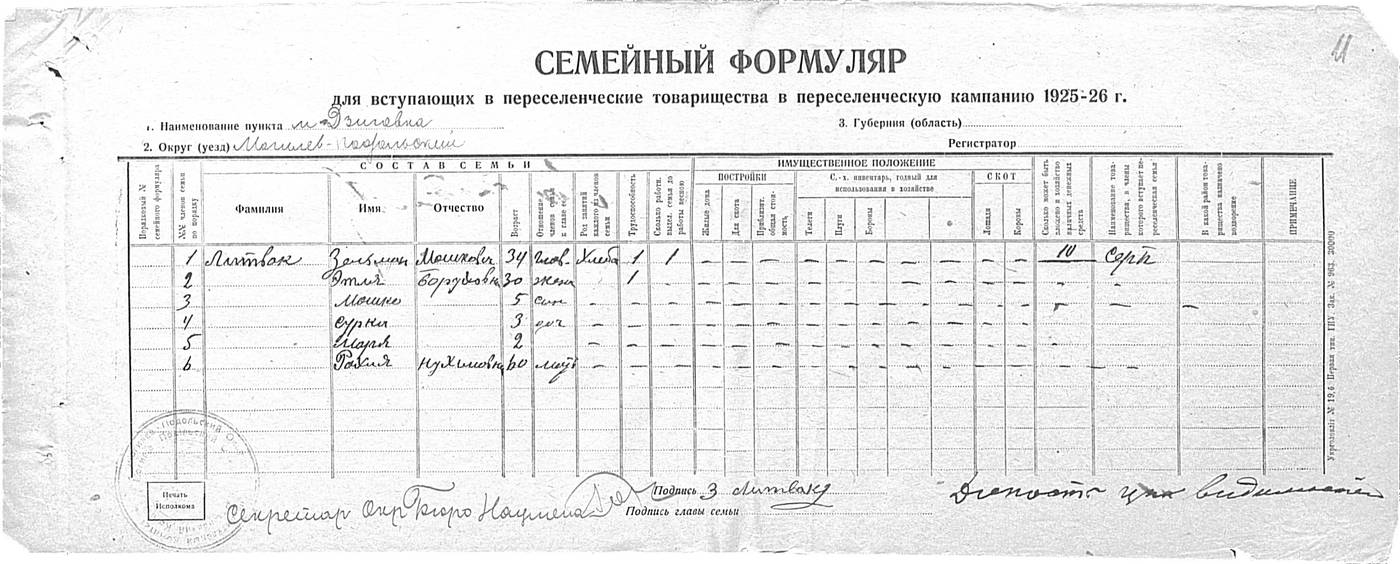 СЕМЕЙНЫЙ ФОРМУЛЯР
для вступающих в переселенческие товарищества в переселенческую кампанию 1925-26 г.
1. Наименование пункта м. Дзиговка 3. Губерния (область)
2. Округ (уезд) Могилев-Подольский Регистратор
СОСТАВ СЕМЬИ ИМУЩЕСТВЕННОЕ ПОЛОЖЕНИЕ
ПОСТРОЙКИ С.-х. инвентарь, годный для использования в хозяйстве СКОТ
Порядковый № семейного формуляра №№ членов семьи по порядку Фамилия Имя Отчество Возраст Отношение членов семьи к главе ее Род занятий каждого из членов семьи Трудоспособность Сколько работн. выдел. семья до работы весною Жилые дома Для скота Приблизит. общая стоимость Телеги Плуги Бороны Лошади Коровы Сколько может быть вложено в хозяйство наличных денежных средств Наименование товарищества, в члены которого вступает переселенческая семья В какой район товарищества назначено водворение ПРИМЕЧАНИЕ
1 Литвак Зельман Мошкович 34 глав. Хлеба 1 1 — — — — — — — — — 10 Серп
2 Этля Боруховна 30 жена 1
3 Мошко 5 син
4 Сурка 3 доч
5 Маря 2
6 Рахиля Нухимовна 60 мать
Печать Исполкома
Секретар Окр Бюро Нацмена
Подпись З Литвак
Подпись главы семьи
Укрголовліт № 19,6. Первая тип. ГИУ. Зак. № 963. 20000